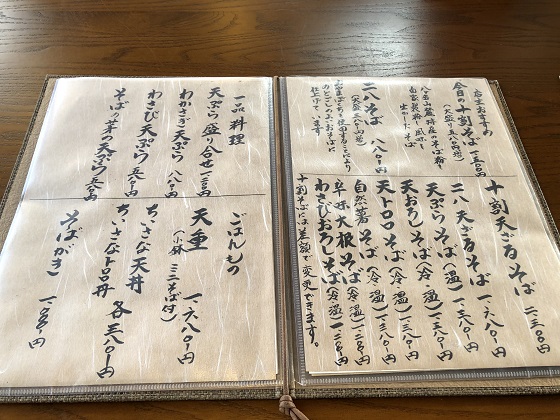 店主おすすめ
今日の十割そば 一、三〇〇円
(大盛り 五八〇円増)
八ヶ岳山麓
自家製粉し風味
生かしたそば
二八そば 八〇〇円
(大盛 三八〇円増)
のどごしのよいおそばに
仕上げています
十割天ざるそば 二、三〇〇円
二八天ざるそば 一、六八〇円
天ぷらそば(温) 一、三八〇円
天おろしそば(冷・温) 一、三八〇円
天トロロそば(冷・温) 一、三八〇円
自然薯そば(冷・温) 一、二〇〇円
辛味大根そば(冷・温) 一、二〇〇円
わさびおろしそば(冷・温) 一、二〇〇円
十割そばには差額で変更できます。
一品料理
天ぷら盛り合せ 一、二〇〇円
わかさぎ天ぷら 八八〇円
わさび天ぷら 五八〇円
そばの芽の天ぷら 五八〇円
ごはんもの
天重 一、六八〇円
(小鉢 ミニそば付)
ちいさな天丼
ちいさなトロロ丼 各三八〇円
そばがき 一、〇〇〇円